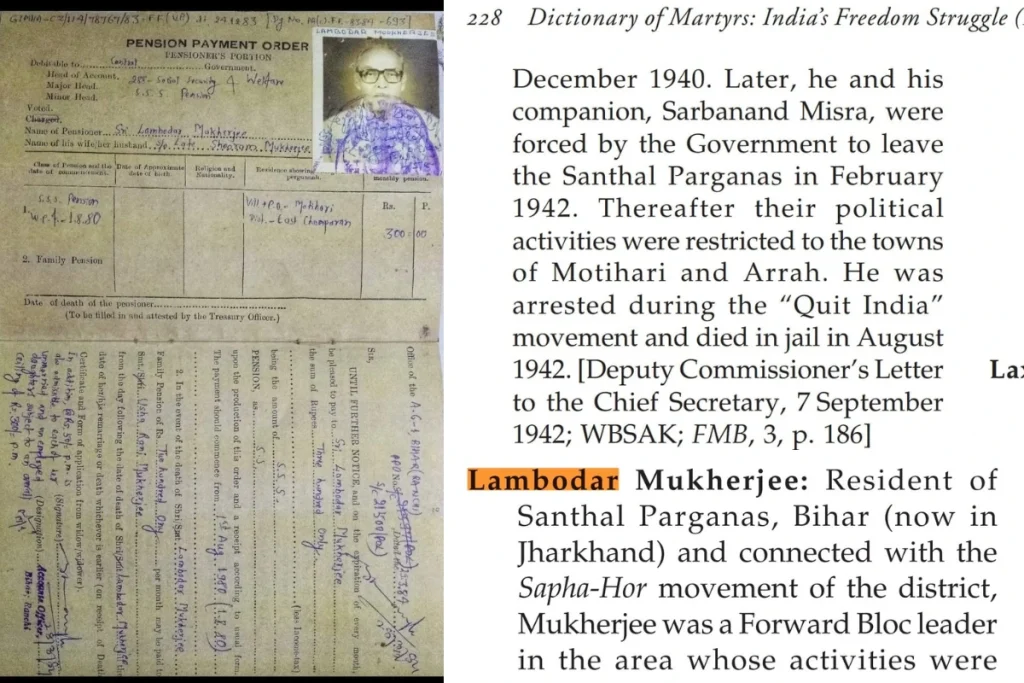 LAMBODAR MUKHERJEE
PENSION PAYMENT ORDER
PENSIONER'S PORTION
Debitable to Central Government.
Head of Account.
Major Head. 288 - Social Security & Welfare
Minor Head. S.S.S. Pension
Voted.
Charged.
Name of Pensioner Sri Lambodar Mukherjee
Name of his wife/her husband S/o. Late
Class of Pension and the date of commencement.
Date of Approximate date of birth
Religion and Nationality.
Residence showing
monthly pension.
S.S.S. Pension
1.
Vill + P.O -
Dist. - East Champaran
Rs. P.
300=00
2. Family Pension
Date of death of the pensioner
(To be filled in and attested by the Treasury Officer.)
Office of the A.G-I BIHAR (RANCHI)
Sir,
UNTIL FURTHER NOTICE, and on the expiration of every month,
be pleased to pay to Sri Lambodar Mukherjee
the sum of Rupees Three hundred only
(less income-tax)
being the amount of S.S.S
PENSION, as
upon the production of this order and a receipt according to usual form.
The payment should commence from 1st Aug. 1980 (1.8.80)
2. In the event of the death of Shri/Smt. Lambodar Mukherjee
Family Pension of Rs. Two hundred only per month may be paid to
Smt. Usha Rani Mukherjee
from the day following the date of death of Shri/Smt Lambodar Mukherjee
date of her/his remarriage or death whichever is earlier (on receipt of Death
Certificate and Form of application from widow/widower).
(Signature)
(Designation) Accounts Officer,
Bihar, Ranchi
228 Dictionary of Martyrs: India's Freedom Struggle
December 1940. Later, he and his
companion, Sarbanand Misra, were
forced by the Government to leave
the Santhal Parganas in February
1942. Thereafter their political
activities were restricted to the towns
of Motihari and Arrah. He was
arrested during the “Quit India”
movement and died in jail in August
1942. [Deputy Commissioner's Letter
to the Chief Secretary, 7 September
1942; WBSAK; FMB, 3, p. 186]
Lambodar Mukherjee: Resident of
Santhal Parganas, Bihar (now in
Jharkhand) and connected with the
Sapha-Hor movement of the district,
Mukherjee was a Forward Bloc leader
in the area whose activities were